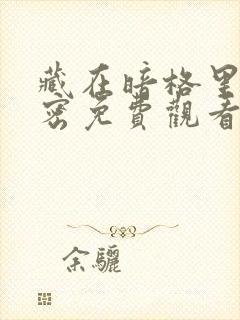 藏在暗格里
密免費觀看
余驪